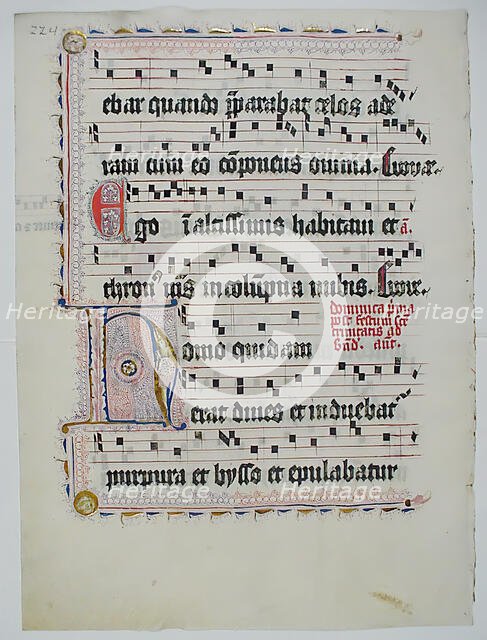 224
ebat quando p̄parabat celos ade
ram cum eo cōponens omnia. Euouae.
Ego ī altissimis habitavi et ā
thron' me' in colūpna nubis. Euoue.
dominica prima
post festum sce
trinitatis ad
Bnd. ant.
Homo quidam
erat dives et induebat
purpura et bysso et epulabatur
Heritage
Heritage
Heritage
Heritage
Heritage
Heritage